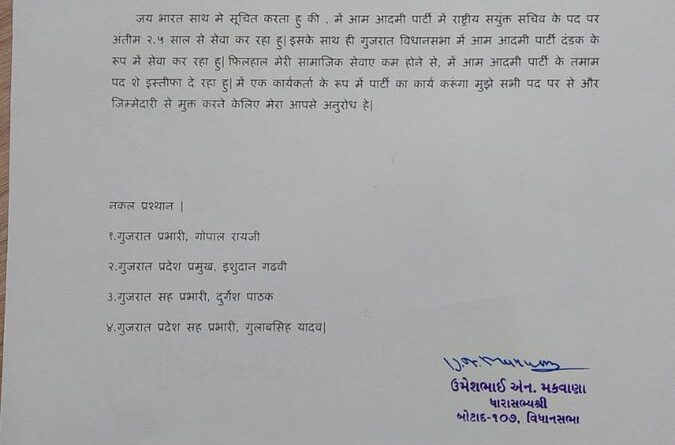 जय भारत साथ मे सूचित करता हु की , में आम आदमी पार्टी में राष्ट्रीय सयुंक सचिव के पद पर
अंतीम २.५ साल से सेवा कर रहा हु| इसके साथ ही गुजरात विधानसभा में आम आदमी पार्टी दंडक के
रूप में सेवा कर रहा हु| फिलहाल मेरी सामाजिक सेवाए कम होने से, में आम आदमी पार्टी के तमाम
पद शे इस्तीफा दे रहा हु| में एक कार्यकर्ता के रूप में पार्टी का कार्य करूंगा मुझे सभी पद पर से और
जिम्मेदारी से मुक्त करने केलिए मेरा आपसे अनुरोध हे|
नकल प्रश्थान |
१.गुजरात प्रभारी, गोपाल रायजी
२.गुजरात प्रदेश प्रमुख, इशुदान गढवी
3.गुजरात सह प्रभारी, दुर्गेश पाठक
४.गुजरात प्रदेश सह प्रभारी, गुलाबसिह यादव|
ઉમેશભાઈ એન. મકવાણા
ધારાસભ્યશ્રી
બોટાદ-૧૦૭, વિધાનસભા